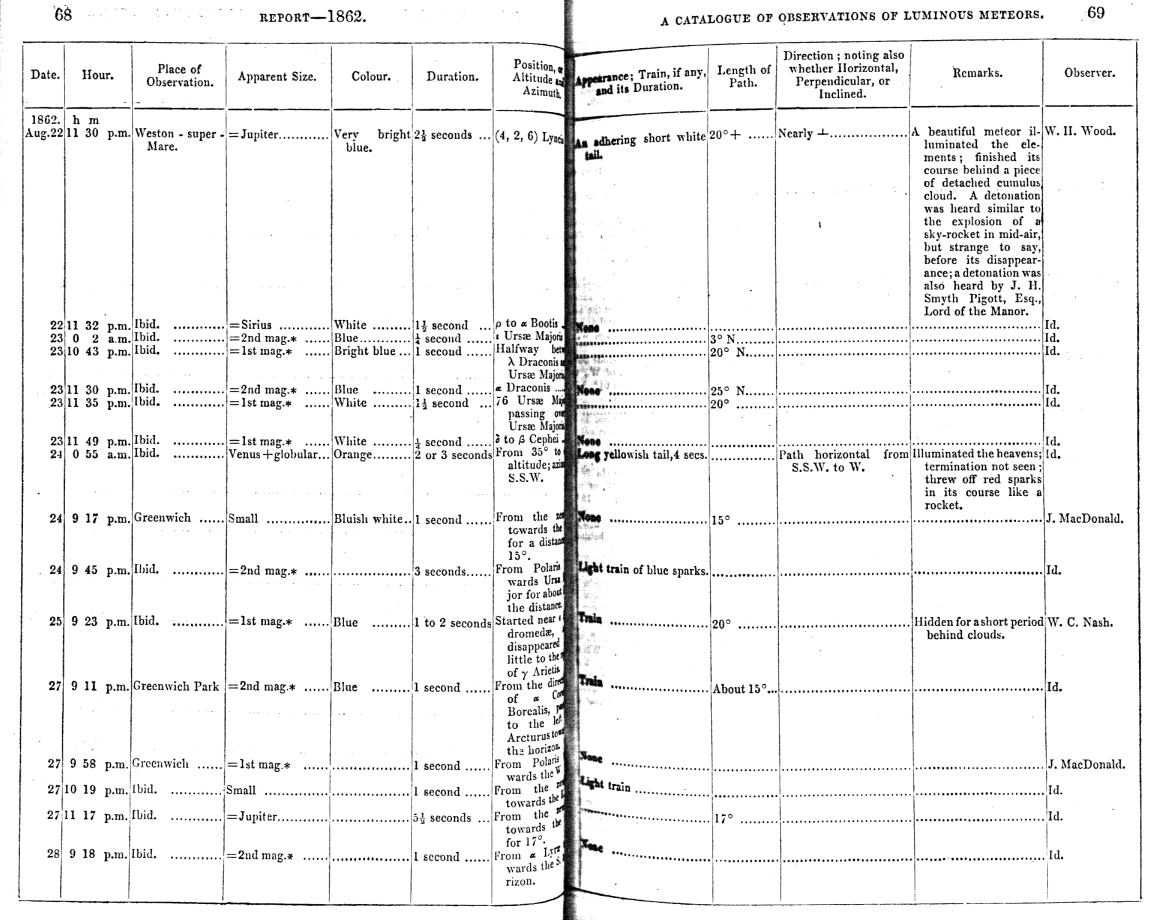 68 REPORT—1862.
A CATALOGUE OF OBSERVATIONS OF LUMINOUS METEORS. 69
Date.
Hour.
Place of
Observation.
Apparent Size.
Colour.
Duration.
Position,
Altitude and
Azimuth.
Appearance; Train, if any,
and its Duration.
Length of
Path.
Direction; noting also
whether Horizontal,
Perpendicular, or
Inclined.
Remarks.
Observer.
1862. h m
Aug.22 11 30 p.m. Weston-super-
Mare.
=Jupiter............
Very bright
blue.
2½ seconds ...
(4, 2, 6) Lyncis
An adhering short white
tail.
20°+ ......
Nearly ⊥..................
A beautiful meteor il-
luminated the ele-
ments; finished its
course behind a piece
of detached cumulus
cloud. A detonation
was heard similar to
the explosion of a
sky-rocket in mid-air,
but strange to say,
before its disappear-
ance; a detonation was
also heard by J. H.
Smyth Pigott, Esq.,
Lord of the Manor.
W. H. Wood.
22 11 32 p.m. Ibid. ............ =Sirius ............ White ......... 1½ second ... ρ to α Bootis . None .................. Id.
23 0 2 a.m. Ibid. ............ =2nd mag.* ...... Blue............ ¼ second ...... ι Ursæ Majoris .................. 3° N............ Id.
23 10 43 p.m. Ibid. ............ =1st mag.* ...... Bright blue ... 1 second ...... Halfway .................. 20° N......... Id.
λ Draconis
Ursæ Majoris
23 11 30 p.m. Ibid. ............ =2nd mag.* ...... Blue ......... 1 second ...... α Draconis .... None .................. 25° N......... Id.
23 11 35 p.m. Ibid. ............ =1st mag.* ...... White ......... 1½ second ... 76 Ursæ .................. 20° ......... Id.
passing
Ursæ Majoris
23 11 49 p.m. Ibid. ............ =1st mag.* ...... White ......... ½ second ...... δ to β Cephei . None .................. Id.
24 0 55 a.m. Ibid. ............ Venus+globular... Orange......... 2 or 3 seconds From 35° to Long yellowish tail, 4 secs. ............ Path horizontal from Illuminated the heavens; Id.
altitude; S.S.W. to W. termination not seen;
S.S.W. threw off red sparks
in its course like a
rocket.
24 9 17 p.m. Greenwich ...... Small ............... Bluish white.. 1 second ...... From the None .................. 15° ......... J. MacDonald.
towards the
for a
15°.
24 9 45 p.m. Ibid. ............ =2nd mag.* ...... ............... 3 seconds...... From Polaris Light train of blue sparks. .................. Id.
wards
jor for about
the distance
25 9 23 p.m. Ibid. ............ =1st mag.* ...... Blue ......... 1 to 2 seconds Started near Train .................. 20° ......... Hidden for a short period W. C. Nash.
dromedæ, behind clouds.
disappeared
little to the
of γ Arietis
27 9 11 p.m. Greenwich Park =2nd mag.* ...... Blue ......... 1 second ...... From the Train .................. About 15°... Id.
of α
Borealis,
to the left
Arcturus
the horizon.
27 9 58 p.m. Greenwich ...... =1st mag.* ...... ............... 1 second ...... From Polaris None .................. J. MacDonald.
wards the
27 10 19 p.m. Ibid. ............ Small ............... ............... 1 second ...... From the Light train .................. Id.
towards the
27 11 17 p.m. Ibid. ............ =Jupiter............ ............... 5½ seconds ... From the .................. 17° ......... Id.
towards the
for 17°.
28 9 18 p.m. Ibid. ............ =2nd mag.* ...... ............... 1 second ...... From α Lyræ None .................. Id.
wards the S.
rizon.